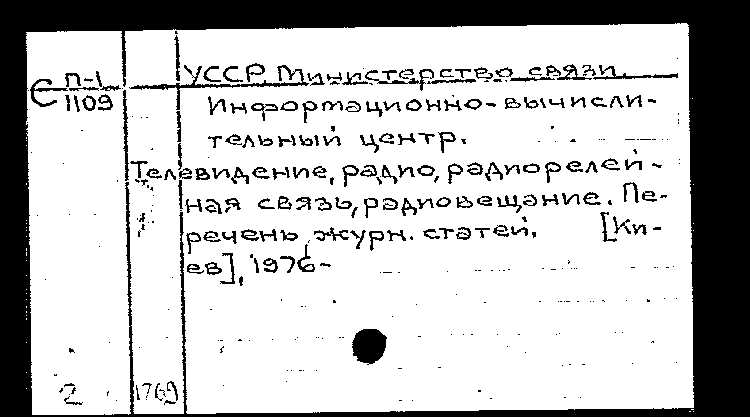 С П-1
1109
УССР. Министерство связи.
Информационно-вычисли-
тельный центр.
Телевидение, радио, радиорелей-
ная связь, радиовещание. Пе-
речень журн. статей. [Ки-
ев], 1976-
2 1769